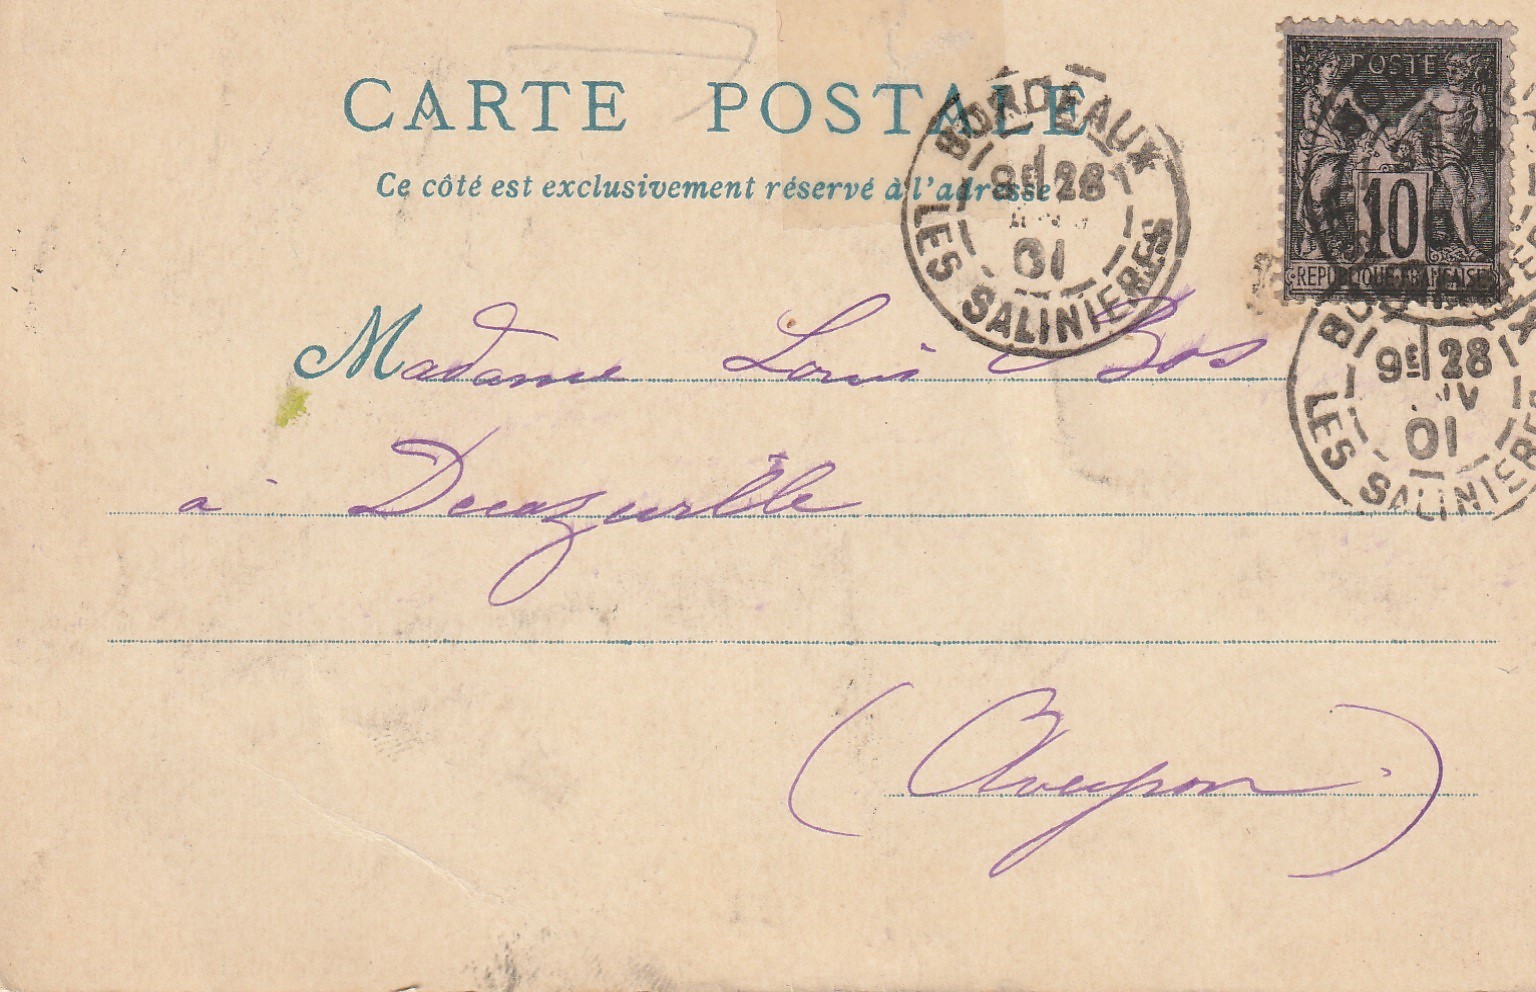 CARTE POSTALE
Ce côté est exclusivement réservé à l'adresse
BORDEAUX
9E 28
01
LES SALINIERES
POSTE
10
REPUBLIQUE FRANÇAISE
9E 28
01
LES SALINIERE
Madame Louis Bos
a Decazeville
(Aveyron)